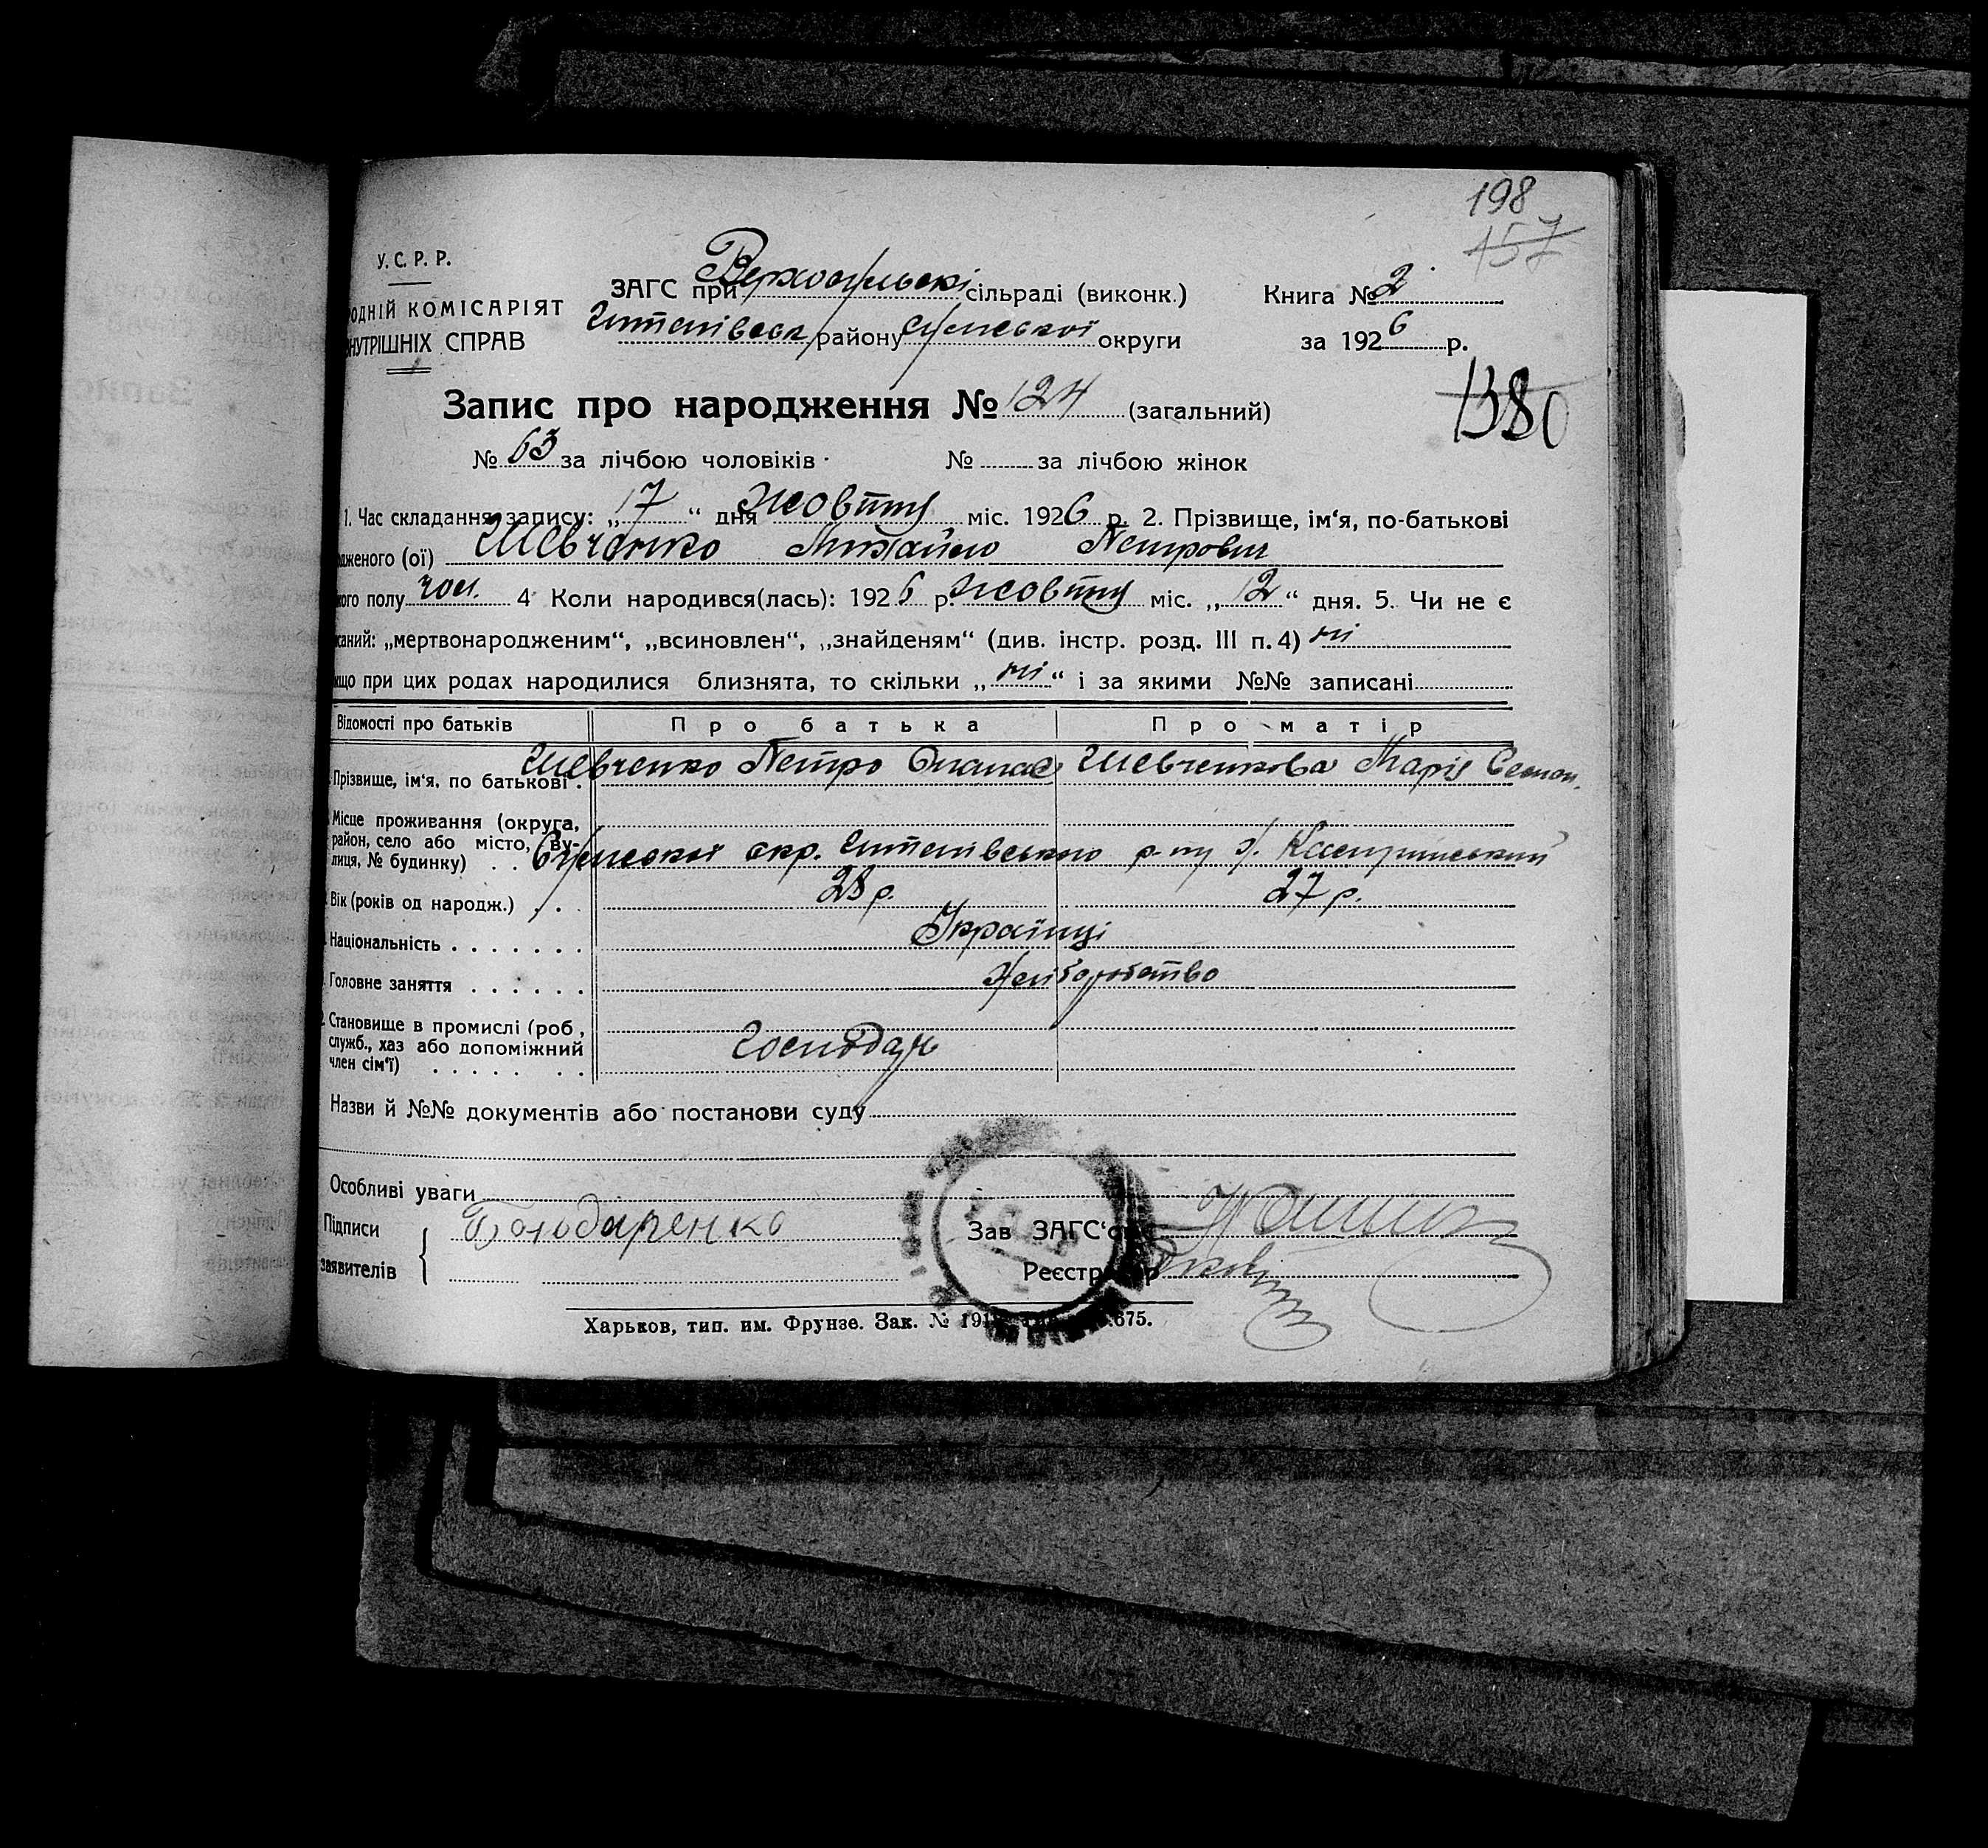 198
157
У. С. Р. Р.
ОДНІЙ КОМІСАРІЯТ
НУТРІШНІХ СПРАВ
ЗАГС при Верхосульскі сільраді (виконк.)
Штепівськ району Сумської округи
Книга № 2
за 1926 р.
1380
Запис про народження № 124 (загальний)
№ 63 за лічбою чоловіків № за лічбою жінок
1. Час складання запису: „17“ дня Жовтня міс. 1926 р. 2. Прізвище, ім‘я, по-батькові
дженого (ої) Шевченко Михайло Петрович
кого полу чол. 4 Коли народився(лась): 1926 р. Жовтня міс. „12“ дня. 5. Чи не є
саний: „мертвонародженим“, „всиновлен“, „знайденям“ (див. інстр. розд. III п. 4) ні
кщо при цих родах народилися близнята, то скільки „ні“ і за якими №№ записані
Відомості про батьків Про батька Про матір
Прізвище, ім‘я, по батькові . Шевченко Петро Опанас Шевченкова Марія Семон.
Місце проживання (округа,
район, село або місто, ву-
лиця, № будинку) . . Сумської окр. Штепівського р-ну х.
Вік (років од народж.) . . 28 р. 27 р.
Національність . . . . . . . Українці
Головне заняття . . . . . . Хліборобство
Становище в промислі (роб,
служб., хаз або допоміжний
член сім‘ї) . . . . . . . . Господар
Назви й №№ документів або постанови суду
Особливі уваги
Підписи Бондаренко Зав ЗАГС‘о
заявителів Реєстр р
Харьков, тип. им. Фрунзе. Зак. № 191 675.